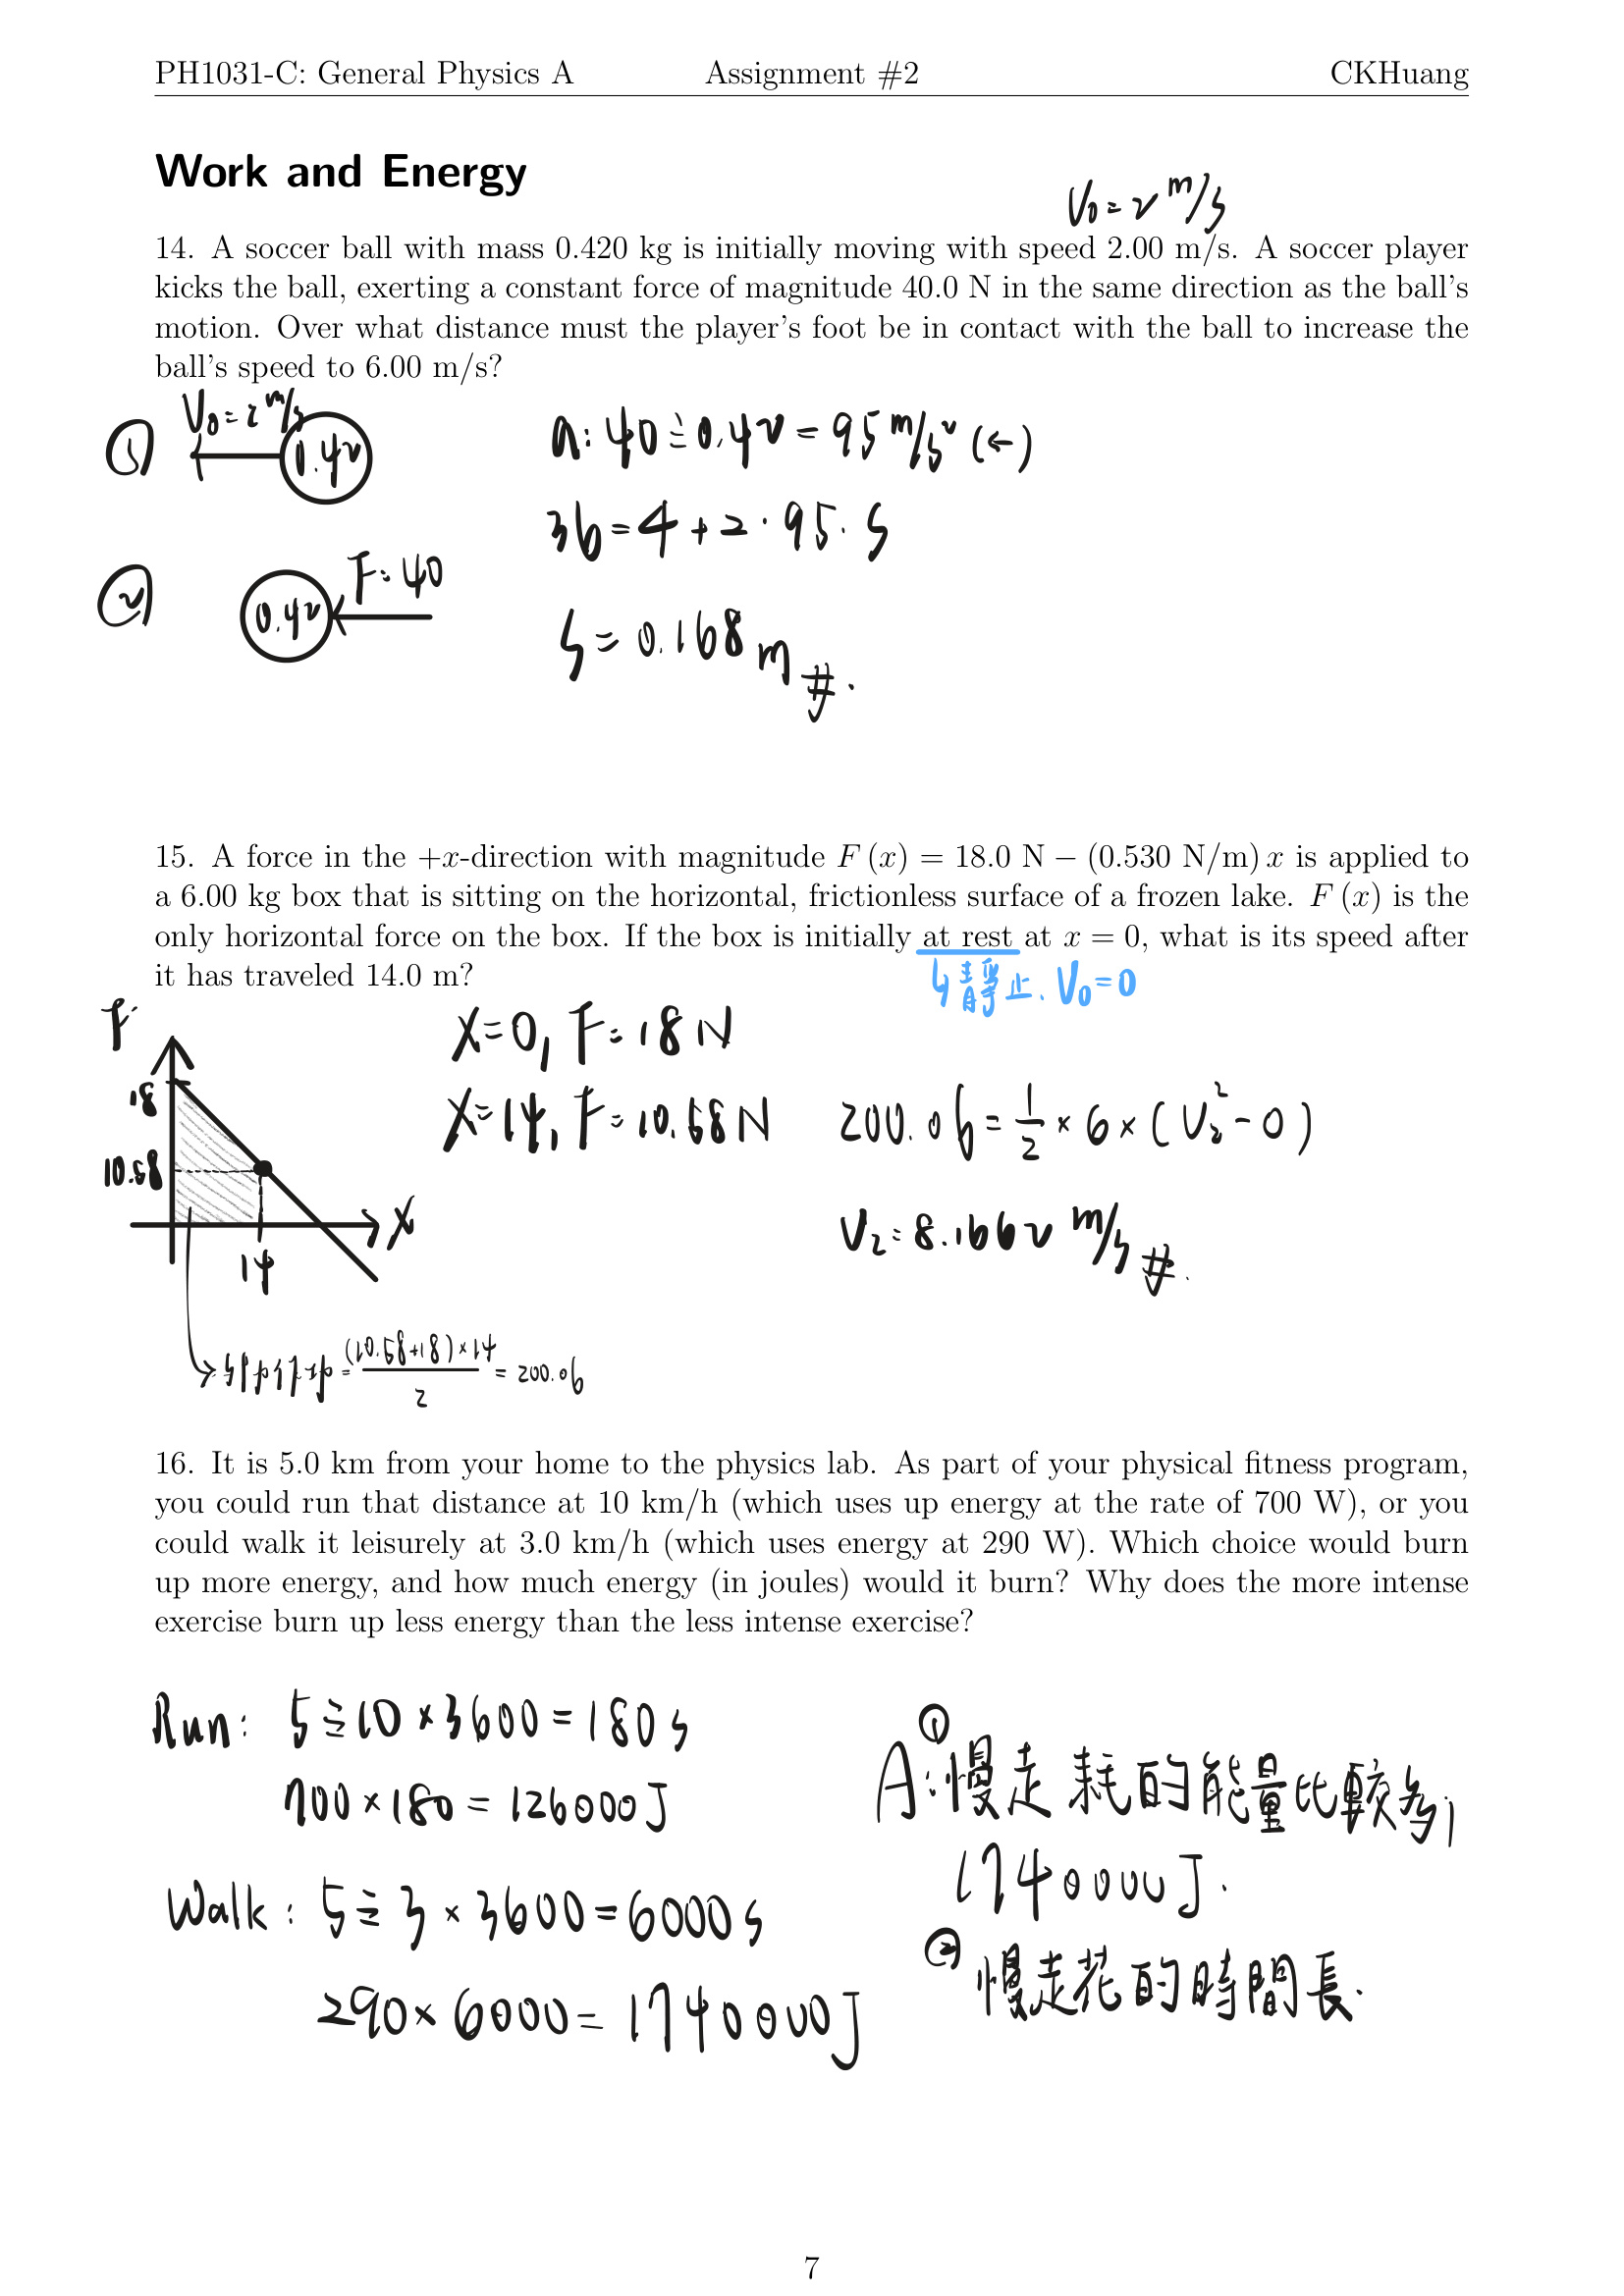 PH1031-C: General Physics A Assignment #2 CKHuang
Work and Energy
V₀=2 m/s
14. A soccer ball with mass 0.420 kg is initially moving with speed 2.00 m/s. A soccer player
kicks the ball, exerting a constant force of magnitude 40.0 N in the same direction as the ball's
motion. Over what distance must the player's foot be in contact with the ball to increase the
ball's speed to 6.00 m/s?
① V₀=2 m/s
0.42
a: 40÷0.42=95 m/s² (←)
36=4+2·95·S
② 0.42 F=40
S=0.168 m #.
15. A force in the +x-direction with magnitude F (x) = 18.0 N − (0.530 N/m) x is applied to
a 6.00 kg box that is sitting on the horizontal, frictionless surface of a frozen lake. F (x) is the
only horizontal force on the box. If the box is initially at rest at x = 0, what is its speed after
it has traveled 14.0 m?
↳靜止. V₀=0
F
18
10.58
14
X
X=0, F=18N
X=14, F=10.58N
=(10.58+18)×14/2=200.06
200.06=1/2×6×(V₂²-0)
V₂=8.1662 m/s #.
16. It is 5.0 km from your home to the physics lab. As part of your physical fitness program,
you could run that distance at 10 km/h (which uses up energy at the rate of 700 W), or you
could walk it leisurely at 3.0 km/h (which uses energy at 290 W). Which choice would burn
up more energy, and how much energy (in joules) would it burn? Why does the more intense
exercise burn up less energy than the less intense exercise?
Run: 5÷10×3600=180s
700×180=126000J
Walk: 5÷3×3600=6000s
290×6000=1740000J
A:①慢走耗的能量比較多,
1740000J.
②慢走花的時間長.
7